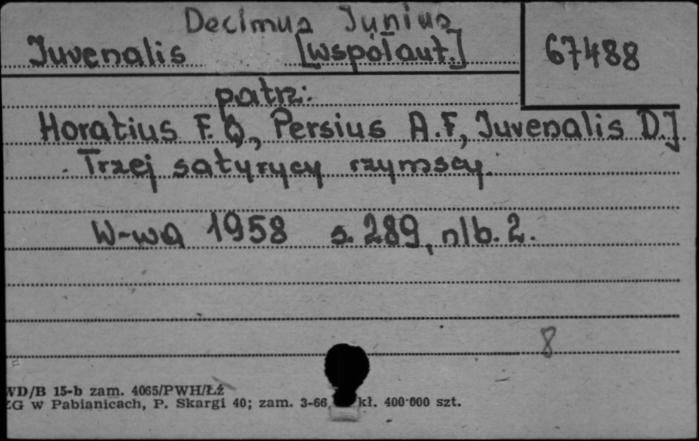 Decimus Junius
Juvenalis [współaut.] 67488
patrz:
Horatius F. Q., Persius A. F., Juvenalis D. J.
Trzej satyrycy rzymscy.
W-wa 1958 s. 289, nlb. 2.
8
WD/B 15-b zam. 4065/PWH/Łź
ZG w Pabianicach, P. Skargi 40; zam. 3-66 kł. 400 000 szt.